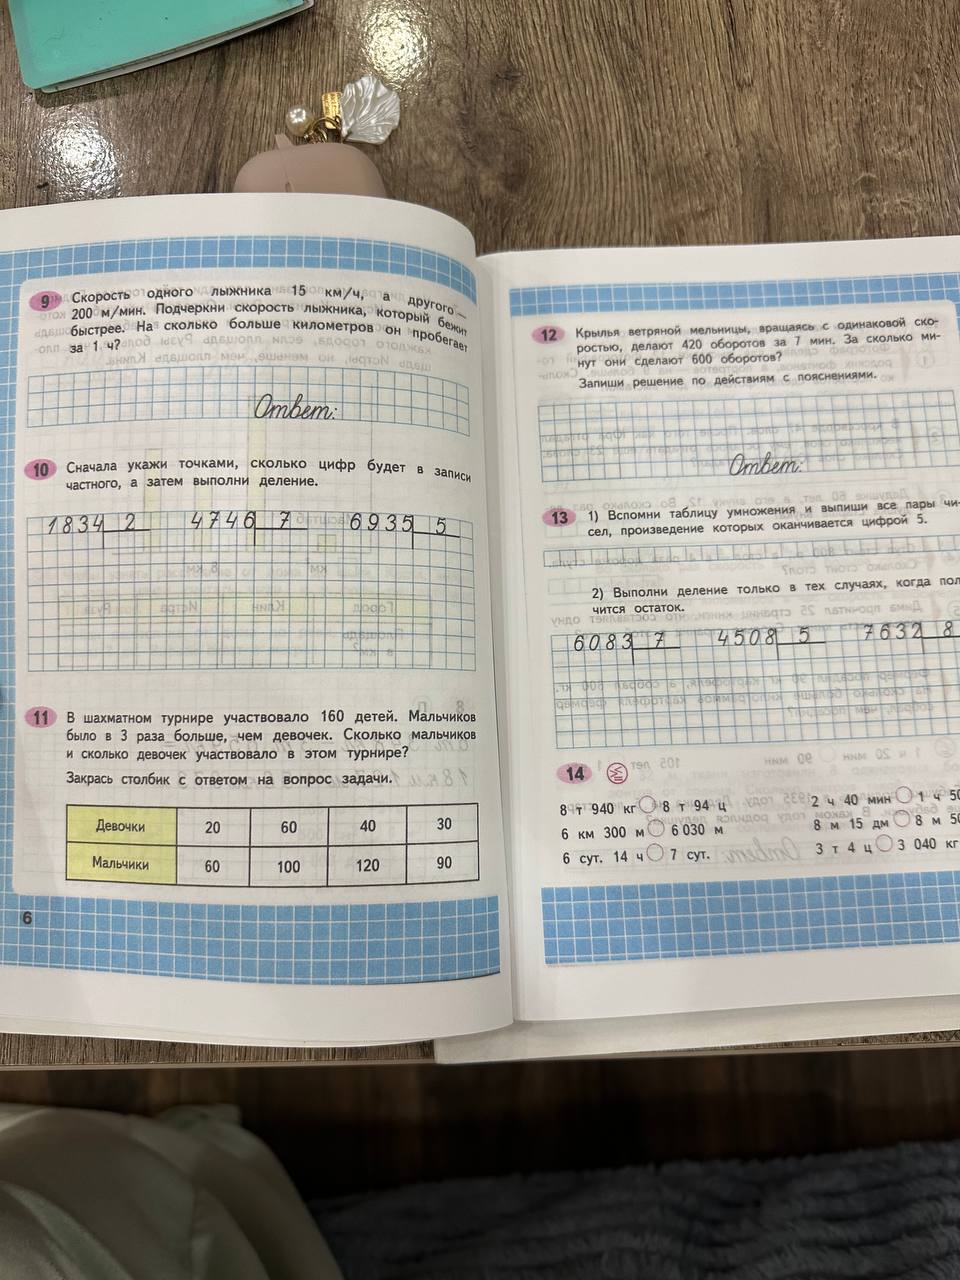 9 Скорость одного лыжника 15 км/ч, а другого —
200 м/мин. Подчеркни скорость лыжника, который бежит
быстрее. На сколько больше километров он пробегает
за 1 ч?
Ответ:
10 Сначала укажи точками, сколько цифр будет в записи
частного, а затем выполни деление.
1834 2 4746 7 6935 5
11 В шахматном турнире участвовало 160 детей. Мальчиков
было в 3 раза больше, чем девочек. Сколько мальчиков
и сколько девочек участвовало в этом турнире?
Закрась столбик с ответом на вопрос задачи.
Девочки 20 60 40 30
Мальчики 60 100 120 90
6
12 Крылья ветряной мельницы, вращаясь с одинаковой ско-
ростью, делают 420 оборотов за 7 мин. За сколько ми-
нут они сделают 600 оборотов?
Запиши решение по действиям с пояснениями.
Ответ:
13 1) Вспомни таблицу умножения и выпиши все пары чи-
сел, произведение которых оканчивается цифрой 5.
2) Выполни деление только в тех случаях, когда пол
чится остаток.
6083 7 4508 5 7632 8
14
8 т 940 кг 8 т 94 ц 2 ч 40 мин 1 ч 50
6 км 300 м 6 030 м 8 м 15 дм 8 м 50
6 сут. 14 ч 7 сут. 3 т 4 ц 3 040 кг